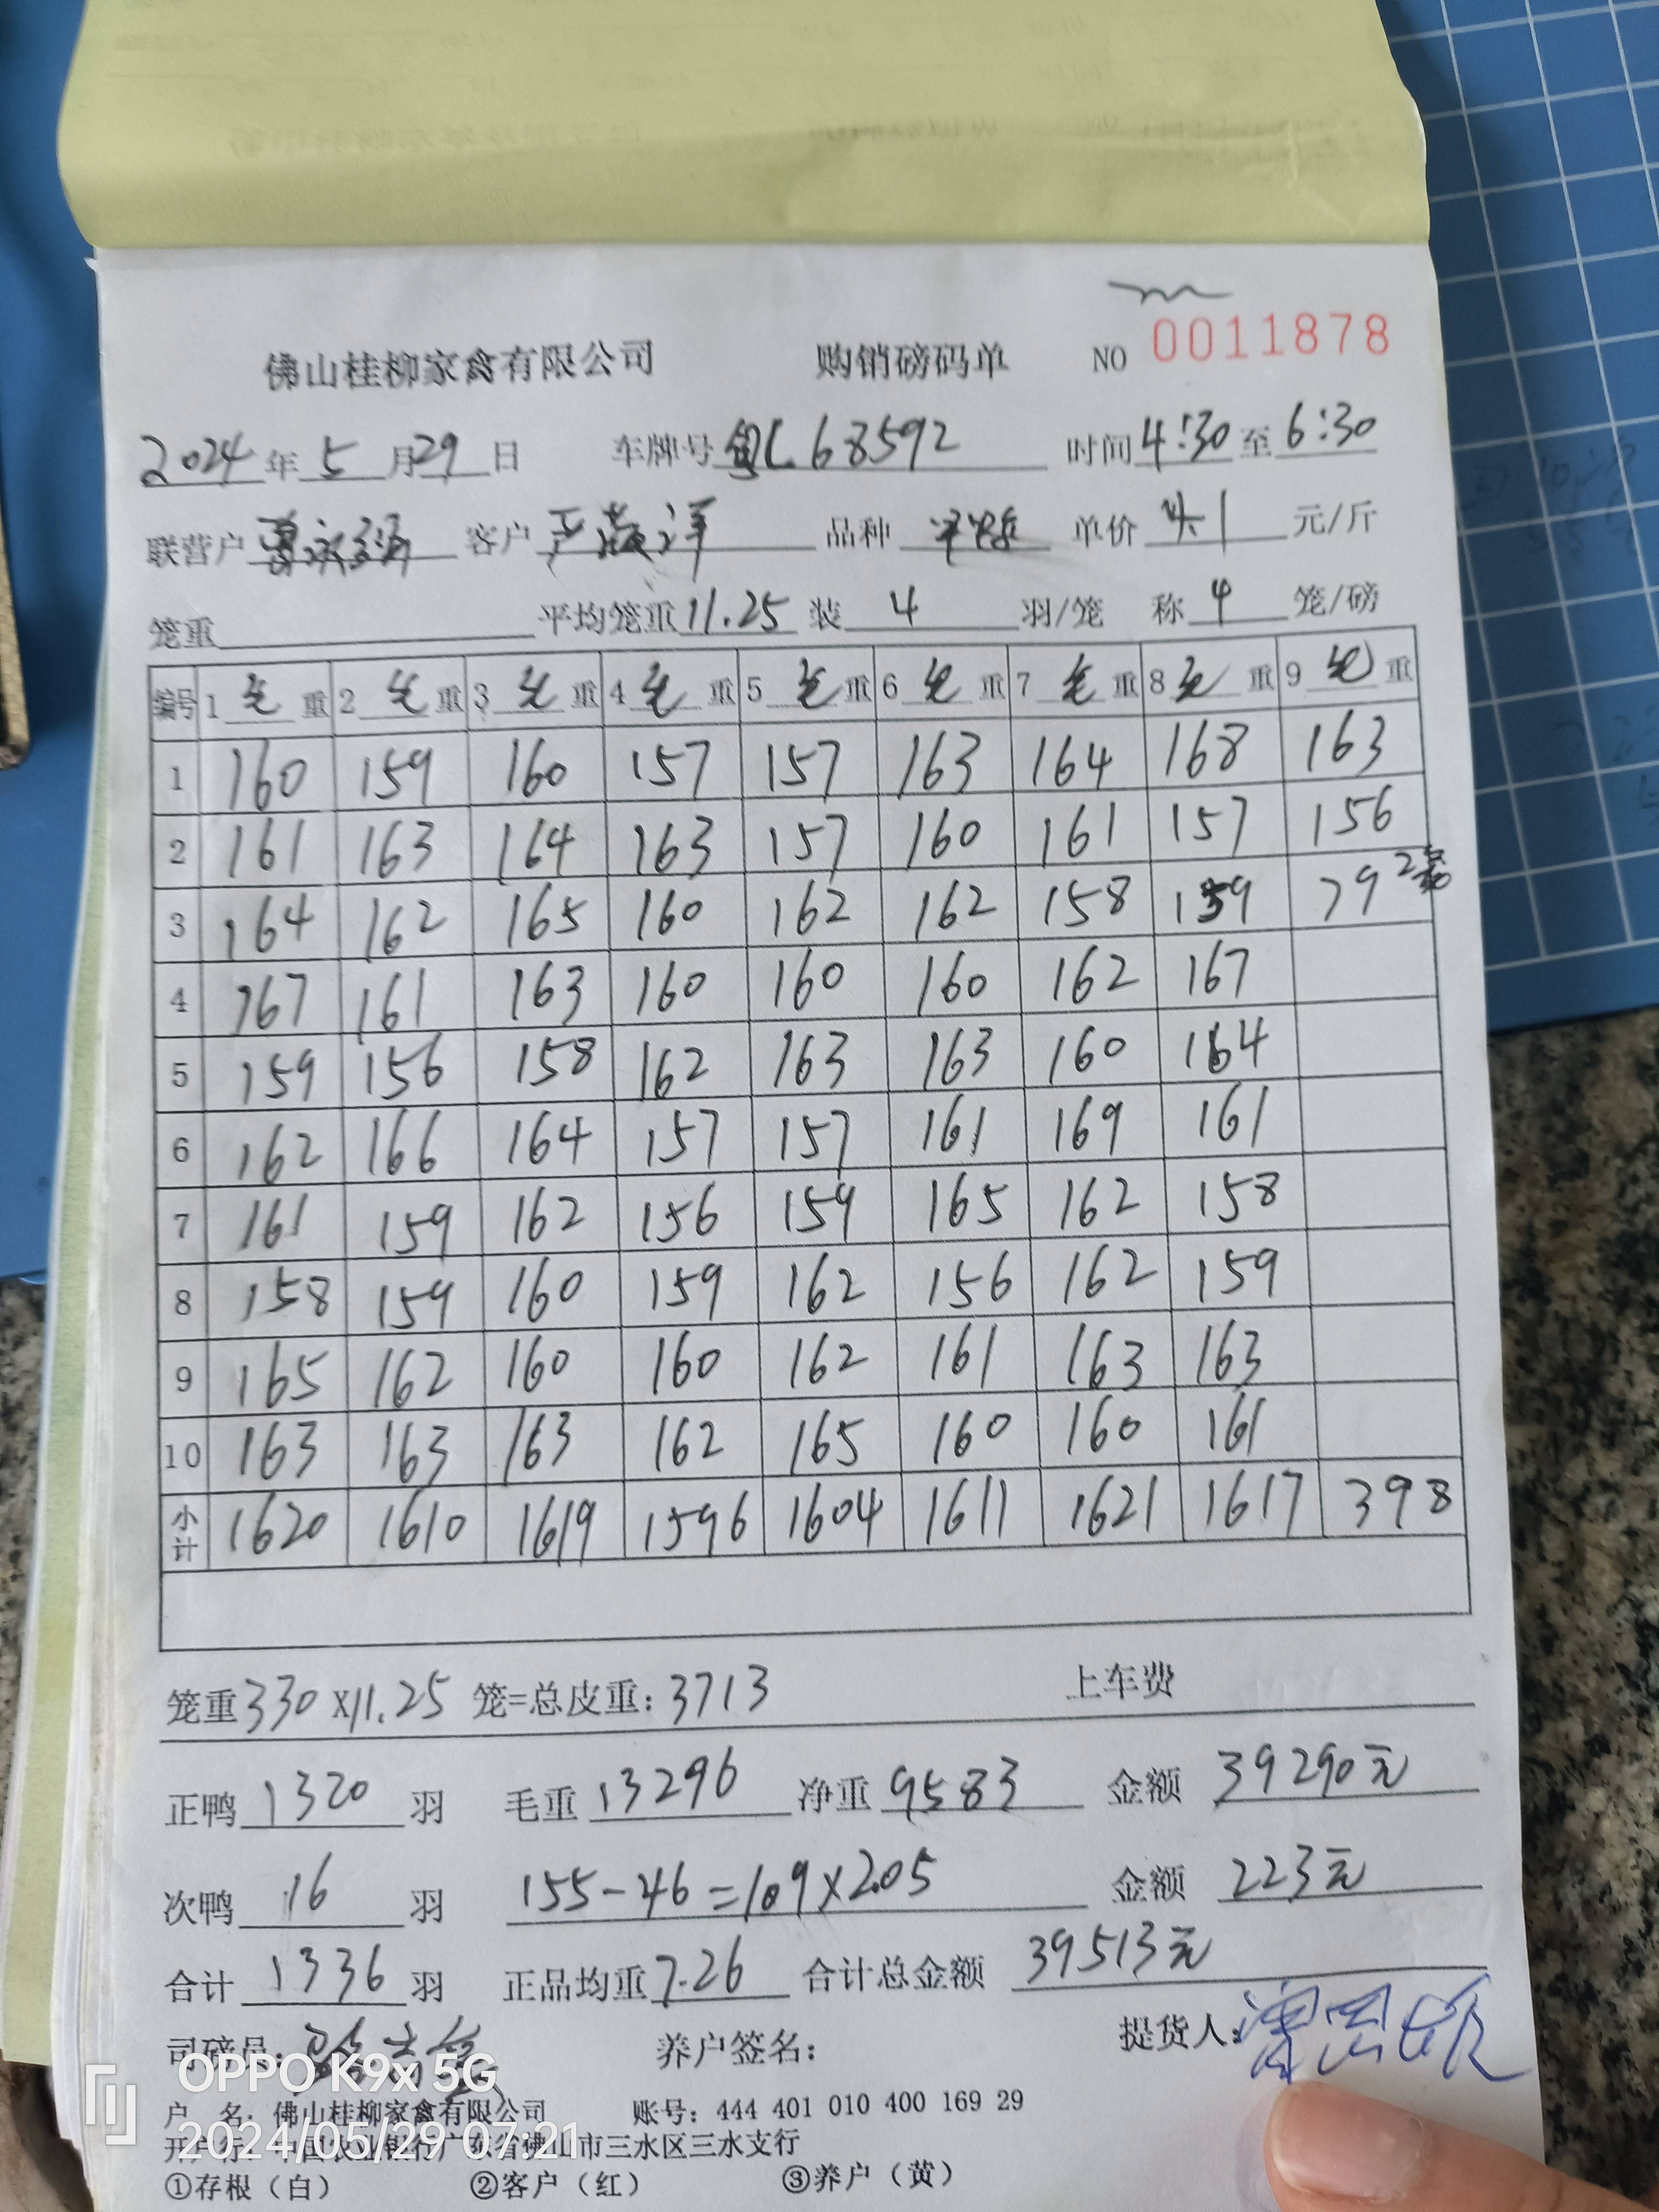 佛山桂柳家禽有限公司 购销磅码单 NO 0011878
2024年5月29日 车牌号 粤L68592 时间4:30至6:30
联营户 客户 严 洋 品种 单价 4.1 元/斤
笼重 平均笼重11.25 装 4 羽/笼 称 4 笼/磅
编号 1 毛 重 2 毛 重 3 毛 重 4 毛 重 5 毛 重 6 毛 重 7 毛 重 8 毛 重 9 毛 重
1 160 159 160 157 157 163 164 168 163
2 161 163 164 163 157 160 161 157 156
3 164 162 165 160 162 162 158 159 79 2笼
4 167 161 163 160 160 160 162 167
5 159 156 158 162 163 163 160 164
6 162 166 164 157 157 161 169 161
7 161 159 162 156 159 165 162 158
8 158 159 160 159 162 156 162 159
9 165 162 160 160 162 161 163 163
10 163 163 163 162 165 160 160 161
小计 1620 1610 1619 1596 1604 1611 1621 1617 398
笼重330×11.25 笼=总皮重:3713 上车费
正鸭 1320 羽 毛重 13296 净重 9583 金额 39290元
次鸭 16 羽 155-46=109×2.05 金额 223元
合计 1336 羽 正品均重 7.26 合计总金额 39513元
司磅员: 养户签名: 提货人:
户 名:佛山桂柳家禽有限公司 账号:444 401 010 400 169 29
开户行:中国农业银行广东省佛山市三水区三水支行
①存根(白) ②客户(红) ③养户(黄)
OPPO K9x 5G
2024/05/29 07:21